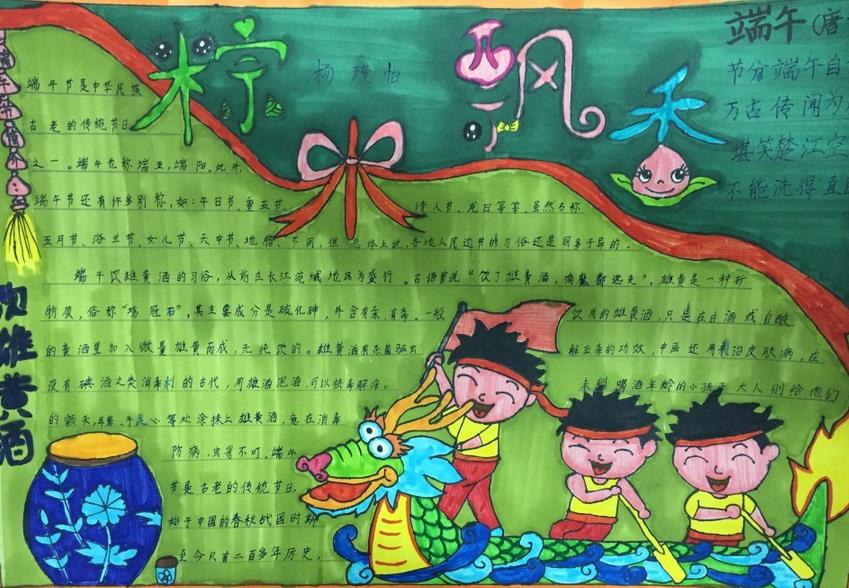 柠 飘 香
杨瑾怡
端午(唐
节分端午自
万古传闻为
堪笑楚江空
不能洗得直
端午节情外
饮雄黄酒
端午节是中华民族
古老的传统节日
之一。端午也称端五,端阳。此外,
端午节还有许多别称,如:午日节、重五节、
诗人节、龙日等等。虽然名称
五月节、浴兰节、女儿节、天中节、地腊、不同,但总体上说,各地人民过节的习俗还是同多于异的。
端午饮雄黄酒的习俗,从前在长江流域地区为盛行。古语曾说“饮了雄黄酒,病魔都远走”。雄黄是一种矿
物质,俗称“鸡冠石”,其主要成分是硫化砷,并含有汞,有毒。一般
饮用的雄黄酒,只是在白酒或自酿
的黄酒里加入微量雄黄而成,无纯饮的。雄黄酒有杀菌驱虫
解五毒的功效,中医还用来治皮肤病。在
没有碘酒之类消毒剂的古代,用雄黄泡酒,可以祛毒解痒。
未到喝酒年龄的小孩子,大人则给他们
的额头,耳鼻、手足心等处涂抹上雄黄酒,意在消毒
防病,虫豸不叮。端午
节是古老的传统节日,
始于中国的春秋战国时期
至今只有二百多年历史。